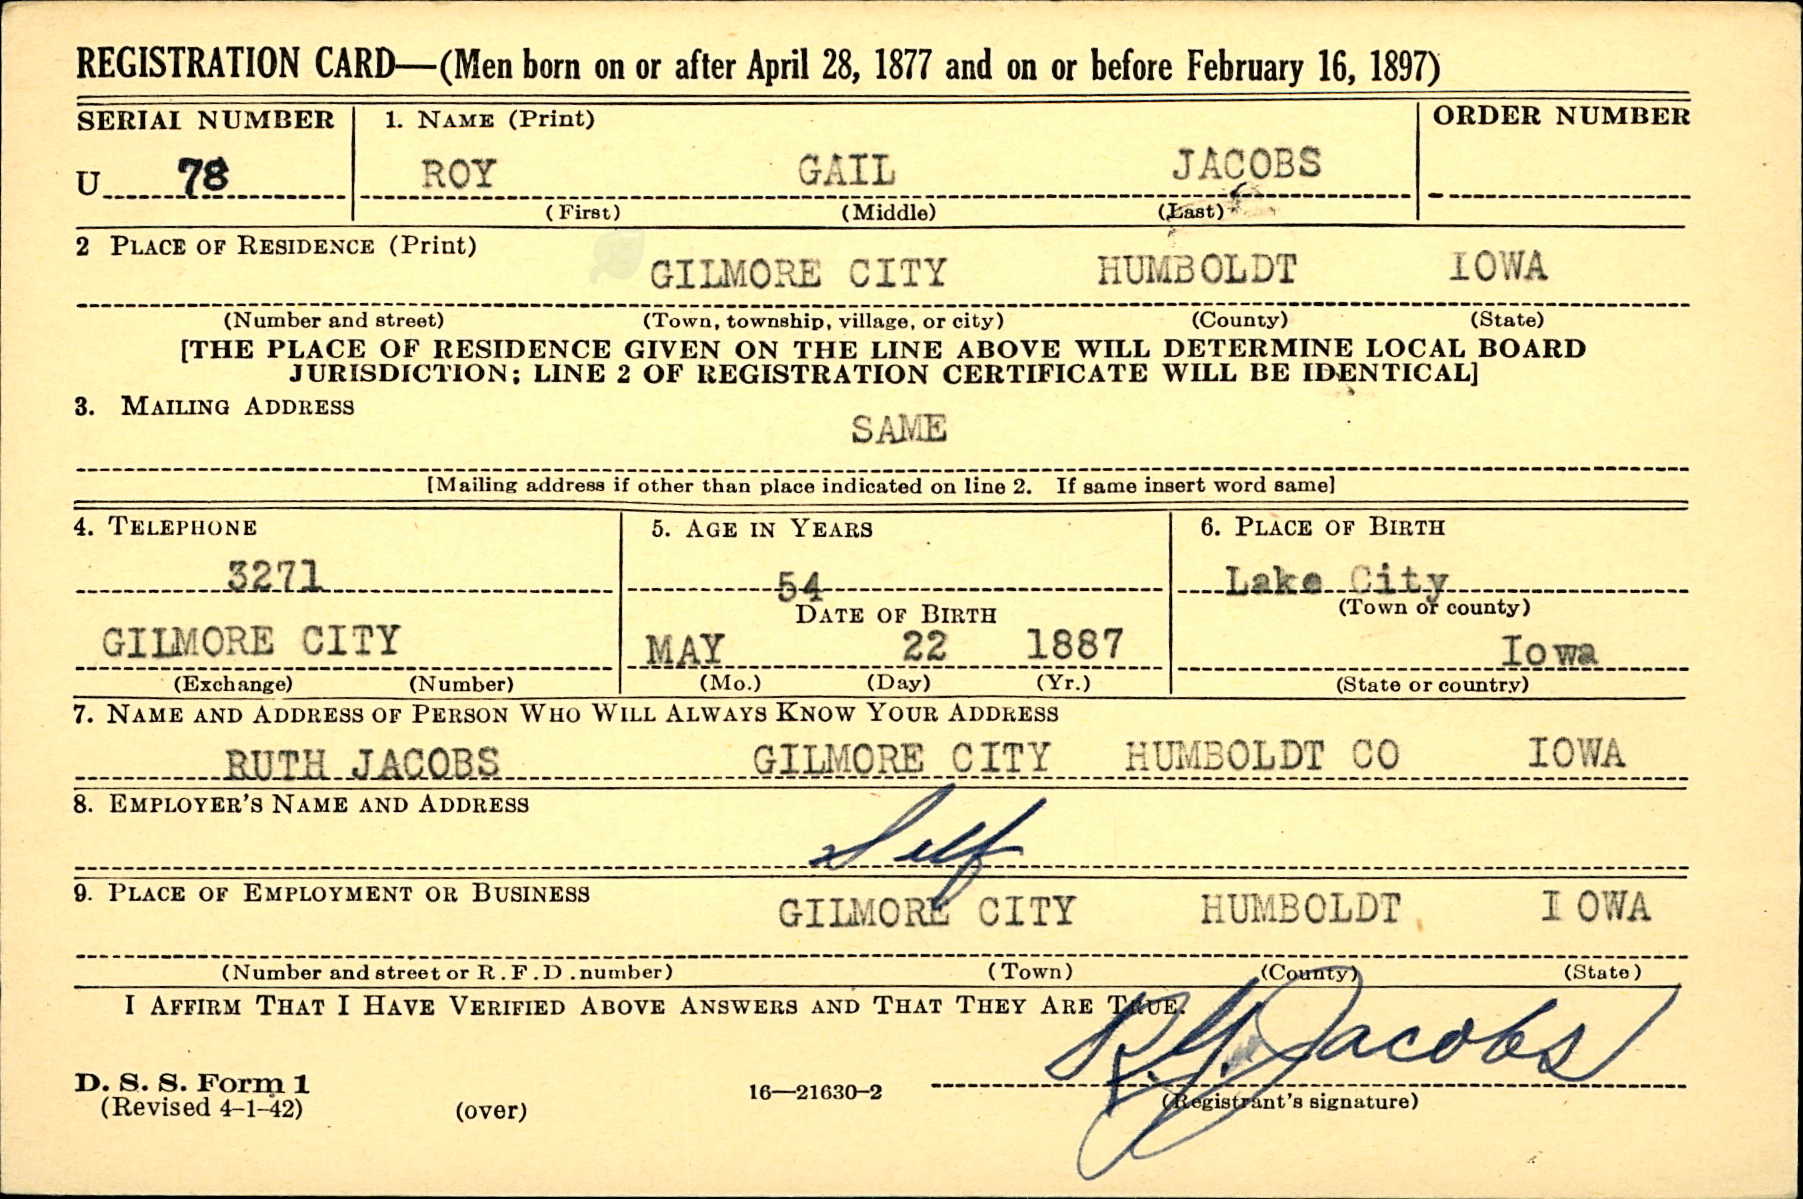 REGISTRATION CARD—(Men born on or after April 28, 1877 and on or before February 16, 1897)
SERIAL NUMBER 1. NAME (Print) ORDER NUMBER
U 78 ROY GAIL JACOBS
(First) (Middle) (Last)
2 PLACE OF RESIDENCE (Print)
GILMORE CITY HUMBOLDT IOWA
(Number and street) (Town, township, village, or city) (County) (State)
[THE PLACE OF RESIDENCE GIVEN ON THE LINE ABOVE WILL DETERMINE LOCAL BOARD
JURISDICTION; LINE 2 OF REGISTRATION CERTIFICATE WILL BE IDENTICAL]
3. MAILING ADDRESS
SAME
[Mailing address if other than place indicated on line 2. If same insert word same]
4. TELEPHONE 5. AGE IN YEARS 6. PLACE OF BIRTH
3271 54 Lake City
DATE OF BIRTH (Town or county)
GILMORE CITY MAY 22 1887 Iowa
(Exchange) (Number) (Mo.) (Day) (Yr.) (State or country)
7. NAME AND ADDRESS OF PERSON WHO WILL ALWAYS KNOW YOUR ADDRESS
RUTH JACOBS GILMORE CITY HUMBOLDT CO IOWA
8. EMPLOYER'S NAME AND ADDRESS
Self
9. PLACE OF EMPLOYMENT OR BUSINESS
GILMORE CITY HUMBOLDT IOWA
(Number and street or R.F.D. number) (Town) (County) (State)
I AFFIRM THAT I HAVE VERIFIED ABOVE ANSWERS AND THAT THEY ARE TRUE.
R. G. Jacobs
D. S. S. Form 1
(Revised 4-1-42) (over) 16—21630-2 (Registrant's signature)